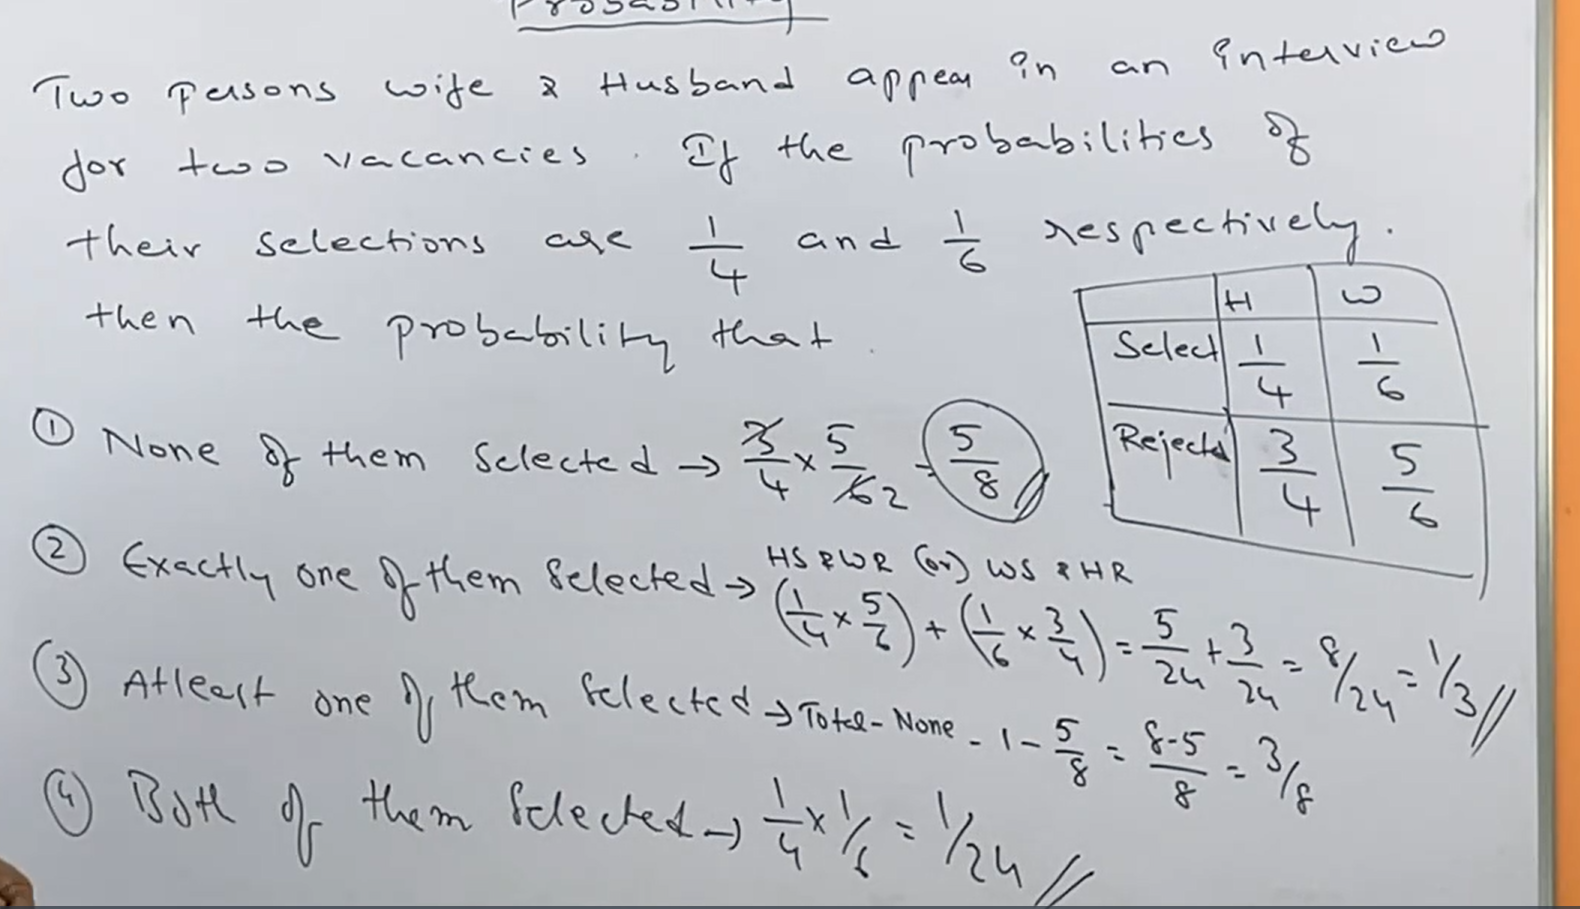 Probability
Two persons wife & Husband appear in an interview
for two vacancies. If the probabilities of
their selections are 1/4 and 1/6 respectively.
then the probability that
H W
Select 1/4 1/6
Rejected 3/4 5/6
① None of them Selected → 3/4 × 5/6 2 = 5/8
② Exactly one of them Selected → HS & WR (or) WS & HR
(1/4 × 5/6) + (1/6 × 3/4) = 5/24 + 3/24 = 8/24 = 1/3 //
③ Atleast one of them Selected → Total - None - 1 - 5/8 = 8-5/8 = 3/8
④ Both of them Selected → 1/4 × 1/6 = 1/24 //